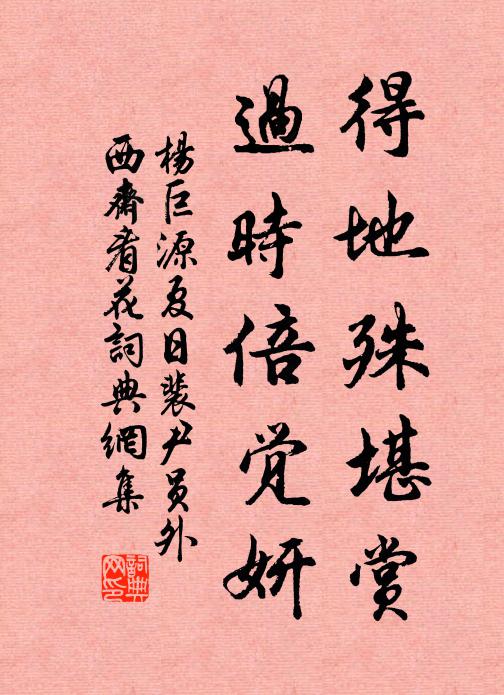 得地殊堪赏
過時倍觉妍
楊巨源夏日裴尹員外
西齋看花詞典網集
詞典网印